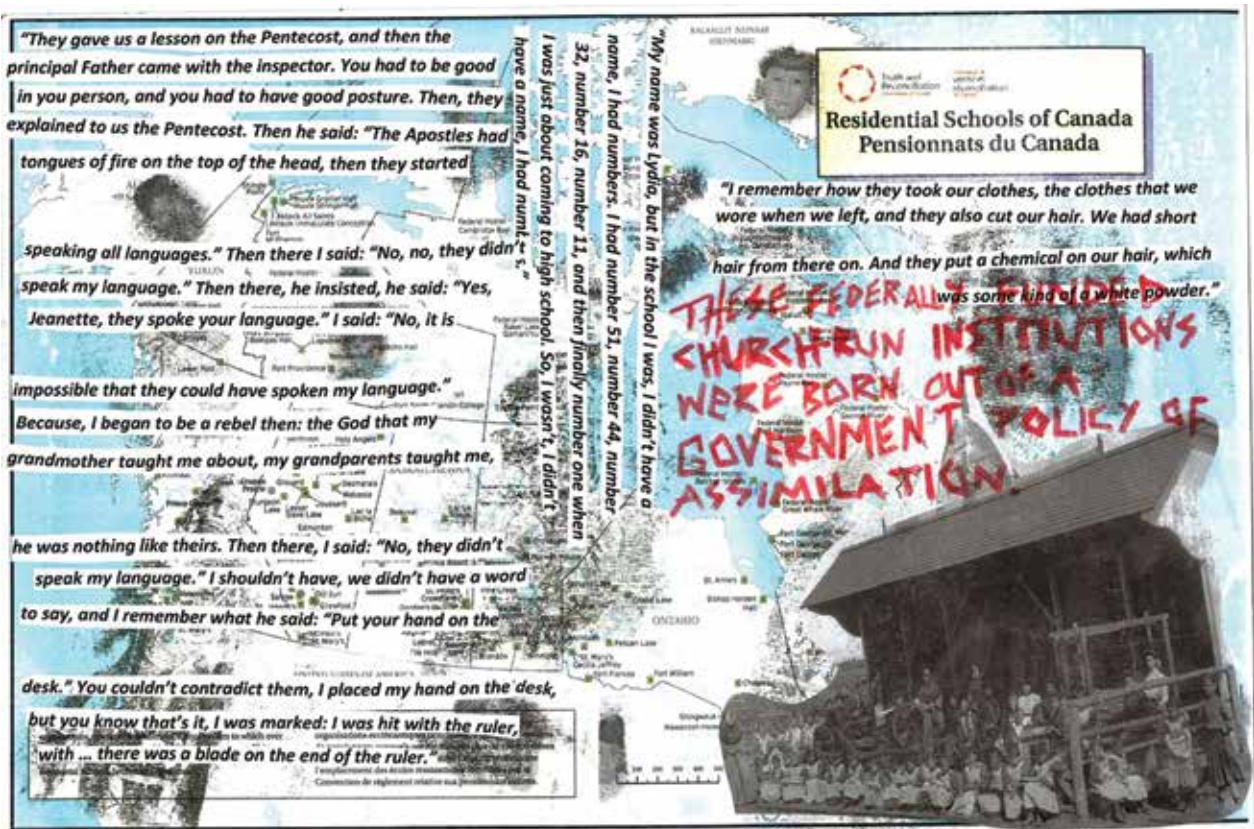 "They gave us a lesson on the Pentecost, and then the
principal Father came with the inspector. You had to be good
in you person, and you had to have good posture. Then, they
explained to us the Pentecost. Then he said: "The Apostles had
tongues of fire on the top of the head, then they started
speaking all languages." Then there I said: "No, no, they didn't
speak my language." Then there, he insisted, he said: "Yes,
Jeanette, they spoke your language." I said: "No, it is
impossible that they could have spoken my language."
Because, I began to be a rebel then: the God that my
grandmother taught me about, my grandparents taught me,
he was nothing like theirs. Then there, I said: "No, they didn't
speak my language." I shouldn't have, we didn't have a word
to say, and I remember what he said: "Put your hand on the
desk." You couldn't contradict them, I placed my hand on the desk,
but you know that's it, I was marked: I was hit with the ruler,
with ... there was a blade on the end of the ruler."
"My name was Lydia, but in the school I was, I didn't have a
name, I had numbers. I had number 51, number 44, number
32, number 16, number 11, and then finally number one when
I was just about coming to high school. So, I wasn't, I didn't
have a name, I had
KALAALLIT NUNAAT
Truth and
Reconciliation
Residential Schools of Canada
Pensionnats du Canada
"I remember how they took our clothes, the clothes that we
wore when we left, and they also cut our hair. We had short
hair from there on. And they put a chemical on our hair, which
was some kind of a white powder."
THESE FEDERALLY FUNDED
CHURCH-RUN INSTITUTIONS
WERE BORN OUT OF A
GOVERNMENT POLICY OF
ASSIMILATION.
YUKON
Fort Providence
Edmonton
ONTARIO
Pelican Lake
St. Mary's
Cecilia Jeffrey
Fort Frances
Fort William
Bishop Horden
Hall
Great Whale River
Fort George